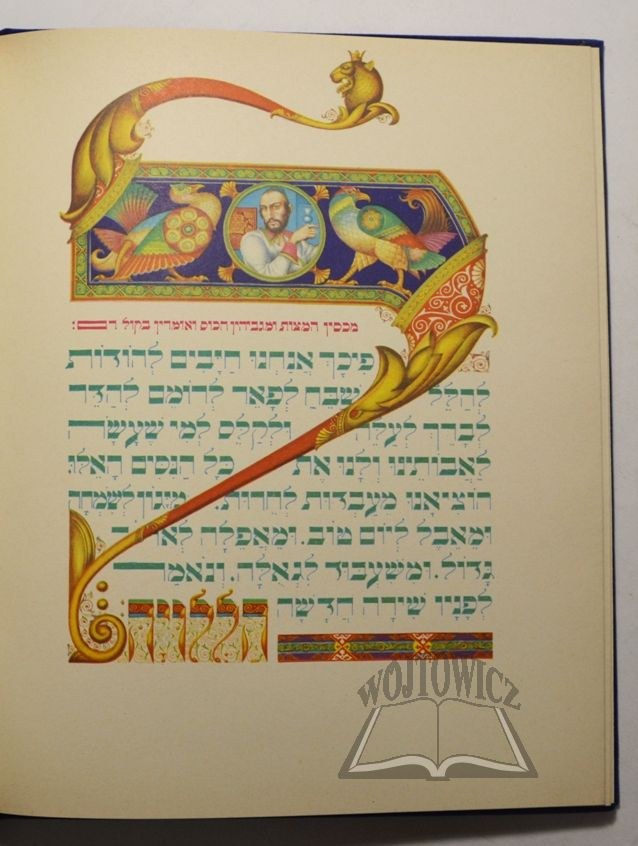 מכסין המצות ומגביהין הכוס ואומרין בקול רם:
לפִיכָךְ אֲנַחְנוּ חַיָּבִים לְהוֹדוֹת
לְהַלֵּל לְשַׁבֵּחַ לְפָאֵר לְרוֹמֵם לְהַדֵּר
לְבָרֵךְ לְעַלֵּה וּלְקַלֵּס לְמִי שֶׁעָשָׂה
לַאֲבוֹתֵינוּ וְלָנוּ אֶת כָּל הַנִּסִּים הָאֵלּוּ
הוֹצִיאָנוּ מֵעַבְדוּת לְחֵרוּת. מִיָּגוֹן לְשִׂמְחָה
וּמֵאֵבֶל לְיוֹם טוֹב. וּמֵאֲפֵלָה לְאוֹר
גָּדוֹל. וּמִשִּׁעְבּוּד לִגְאֻלָּה. וְנֹאמַר
לְפָנָיו שִׁירָה חֲדָשָׁה
הללויה:
WOJTOWICZ